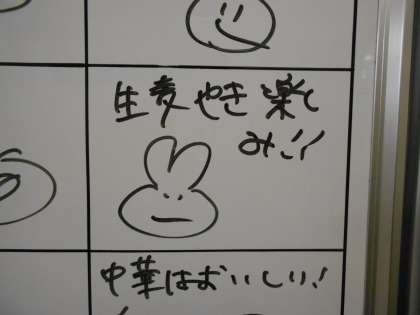 生麦やき楽し
み!!
中華はおいしい!